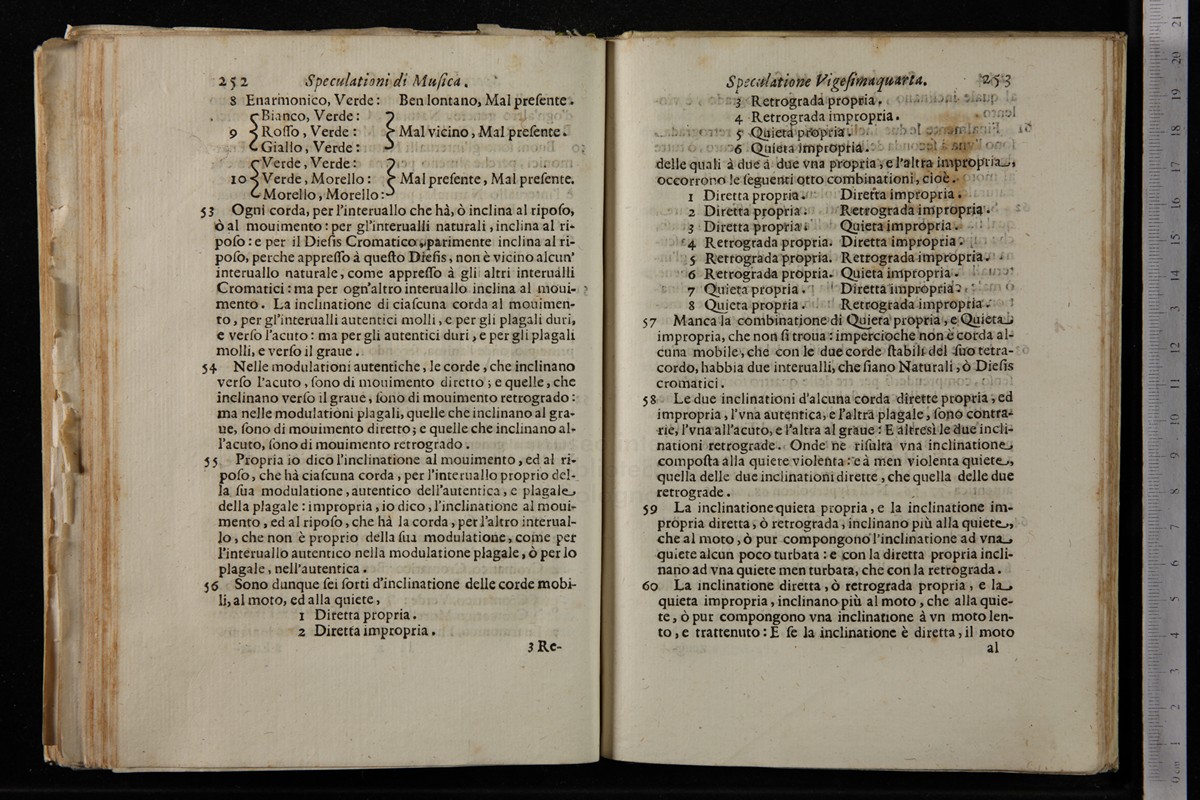 252 Speculationi di Muſica.
8 Enarmonico, Verde: Ben lontano, Mal preſente.
Bianco, Verde:
9 Roſſo, Verde: Mal vicino, Mal preſente.
Giallo, Verde:
Verde, Verde:
10 Verde, Morello: Mal preſente, Mal preſente.
Morello, Morello:
53 Ogni corda, per l'interuallo che hà, ò inclina al ripoſo,
ò al mouimento: per gl'interualli naturali, inclina al ri-
poſo: e per il Dieſis Cromatico, parimente inclina al ri-
poſo, perche appreſſo à queſto Dieſis, non è vicino alcun'
interuallo naturale, come appreſſo à gli altri interualli
Cromatici: ma per ogn'altro interuallo inclina al moui-
mento. La inclinatione di ciaſcuna corda al mouimen-
to, per gl'interualli autentici molli, e per gli plagali duri,
e verſo l'acuto: ma per gli autentici duri, e per gli plagali
molli, e verſo il graue.
54 Nelle modulationi autentiche, le corde, che inclinano
verſo l'acuto, ſono di mouimento diretto; e quelle, che
inclinano verſo il graue, ſono di mouimento retrogrado:
ma nelle modulationi plagali, quelle che inclinano al gra-
ue, ſono di mouimento diretto; e quelle che inclinano al-
l'acuto, ſono di mouimento retrogrado.
55 Propria io dico l'inclinatione al mouimento, ed al ri-
poſo, che hà ciaſcuna corda, per l'interuallo proprio del-
la ſua modulatione, autentico dell'autentica, e plagale
della plagale: impropria, io dico, l'inclinatione al moui-
mento, ed al ripoſo, che hà la corda, per l'altro interual-
lo, che non è proprio della ſua modulatione, come per
l'interuallo autentico nella modulatione plagale, ò per lo
plagale, nell'autentica.
56 Sono dunque ſei ſorti d'inclinatione delle corde mobi-
li, al moto, ed alla quiete,
1 Diretta propria.
2 Diretta impropria.
3 Re-
Speculatione Vigeſimaquarta. 253
3 Retrograda propria.
4 Retrograda impropria.
5 Quieta propria.
6 Quieta impropria.
delle quali à due à due vna propria, e l'altra impropria,
occorrono le ſeguenti otto combinationi, cioè.
1 Diretta propria. Diretta impropria.
2 Diretta propria. Retrograda impropria.
3 Diretta propria. Quieta impropria.
4 Retrograda propria. Diretta impropria.
5 Retrograda propria. Retrograda impropria.
6 Retrograda propria. Quieta impropria.
7 Quieta propria. Diretta impropria.
8 Quieta propria. Retrograda impropria.
57 Manca la combinatione di Quieta propria, e Quieta
impropria, che non ſi troua: impercioche non è corda al-
cuna mobile, che con le due corde ſtabili del ſuo tetra-
cordo, habbia due interualli, che ſiano Naturali, ò Dieſis
cromatici.
58 Le due inclinationi d'alcuna corda dirette propria, ed
impropria, l'vna autentica, e l'altra plagale, ſono contra-
rie, l'vna all'acuto, e l'altra al graue: E altresì le due incli-
nationi retrograde. Onde ne riſulta vna inclinatione
compoſta alla quiete violenta: e à men violenta quiete,
quella delle due inclinationi dirette, che quella delle due
retrograde.
59 La inclinatione quieta propria, e la inclinatione im-
propria diretta, ò retrograda, inclinano più alla quiete,
che al moto, ò pur compongono l'inclinatione ad vna
quiete alcun poco turbata: e con la diretta propria incli-
nano ad vna quiete men turbata, che con la retrograda.
60 La inclinatione diretta, ò retrograda propria, e la
quieta impropria, inclinano più al moto, che alla quie-
te, ò pur compongono vna inclinatione à vn moto len-
to, e trattenuto: E ſe la inclinatione è diretta, il moto
al